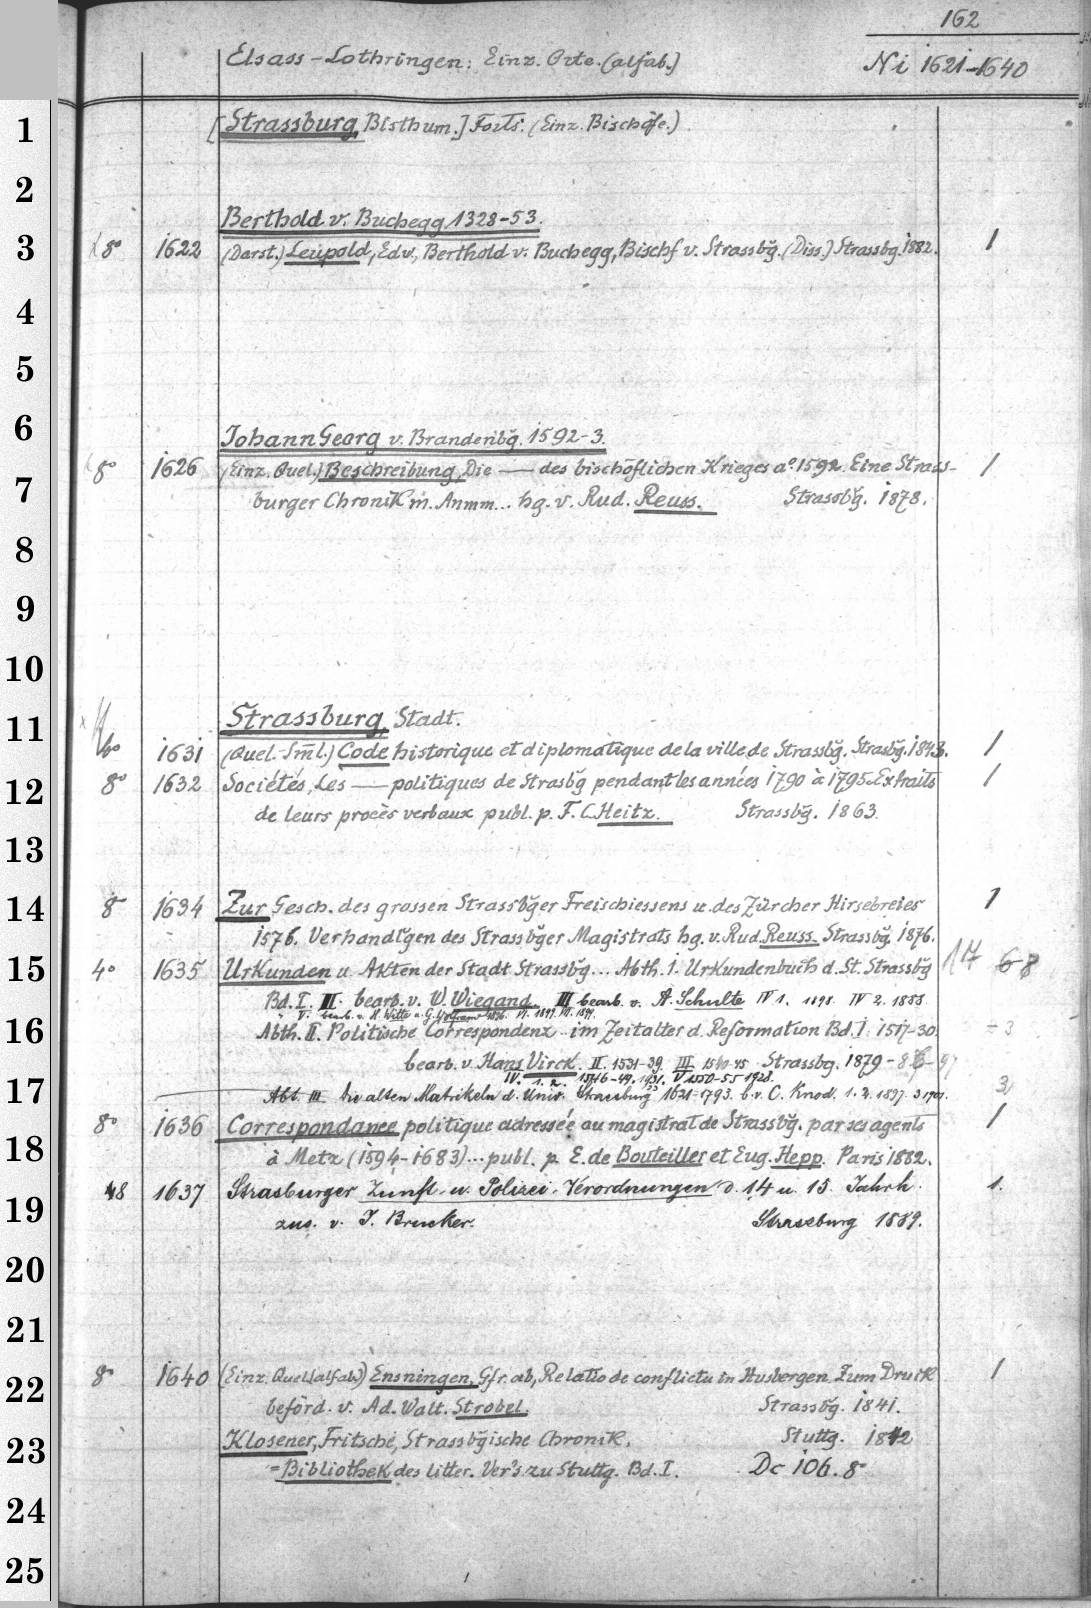 162
Elsass-Lothringen: Einz. Orte. (alfab.) Ni 1621-1640
1
[Strassburg, Bisthum.] Forts. (Einz. Bischöfe.)
2
Berthold v. Buchegg 1328-53.
3
8° 1622 (Darst.) Leupold, Edw., Berthold v. Buchegg, Bischf v. Strassbg. (Diss.) Strassbg. 1882. 1
4
5
6
Johann Georg v. Brandenbg. 1592-3.
8° 1626 (Einz. Quel.) Beschreibung, Die — des bischöflichen Krieges a° 1592. Eine Strass- 1
7
burger Chronik m. Anmm... hg. v. Rud. Reuss. Strassbg. 1878.
8
9
10
11
Strassburg, Stadt.
4° 1631 (Quel.-Sml.) Code historique et diplomatique de la ville de Strassbg. Strasbg. 1843. 1
12
8° 1632 Sociétés, Les — politiques de Strasbg pendant les années 1790 à 1795. Extraits 1
de leurs procès verbaux publ. p. F. C. Heitz. Strassbg. 1863.
13
14
8° 1634 Zur Gesch. des grossen Strassbger Freischiessens u. des Zürcher Hirsebreies 1
1576. Verhandlgen des Strassbger Magistrats hg. v. Rud. Reuss. Strassbg. 1876.
15
4° 1635 Urkunden u. Akten der Stadt Strassbg... Abth. I. Urkundenbuch d. St. Strassbg 14 68
Bd. I. II. bearb. v. W. Wiegand. III bearb. v. A. Schulte IV 1. 1898. IV 2. 1888.
" V. bearb. v. H. Witte u. G. Wolfram 1896. VI. 1899. VII. 1899.
16
Abth. II. Politische Correspondenz.. im Zeitalter d. Reformation Bd. I. 1517-30. 3
bearb. v. Hans Virck. II. 1531-39. III. 1540-45 Strassbg. 1879-
IV. 1. 2. 1546-49. 1931. V 1550-55 1928.
17
Abt. III. Die alten Matrikeln d. Univ. Strassburg 1621-1793. b. v. C. Knod. 1. 2. 1897. 3 1902. 3
8° 1636 Correspondance politique adressée au magistrat de Strassbg. par ses agents 1
18
à Metz (1594-1683)... publ. p. E. de Bouteiller et Eug. Hepp. Paris 1882.
48 1637 Strasburger Zunft- u. Polizei-Verordnungen d. 14 u. 15. Jahrh. 1.
19
zus. v. J. Brucker. Straszburg 1889.
20
21
22
8° 1640 (Einz. Quel. (alfab.)) Ensningen, Gfr. ab, Relatio de conflictu in Husbergen. Zum Druck 1
beförd. v. Ad. Walt. Strobel. Strassbg. 1841.
23
Klosener, Fritsche, Strassbgische Chronik. Stuttg. 1842
=Bibliothek des litter. Ver's. zu Stuttg. Bd. I. Dc 106. 8°
24
25